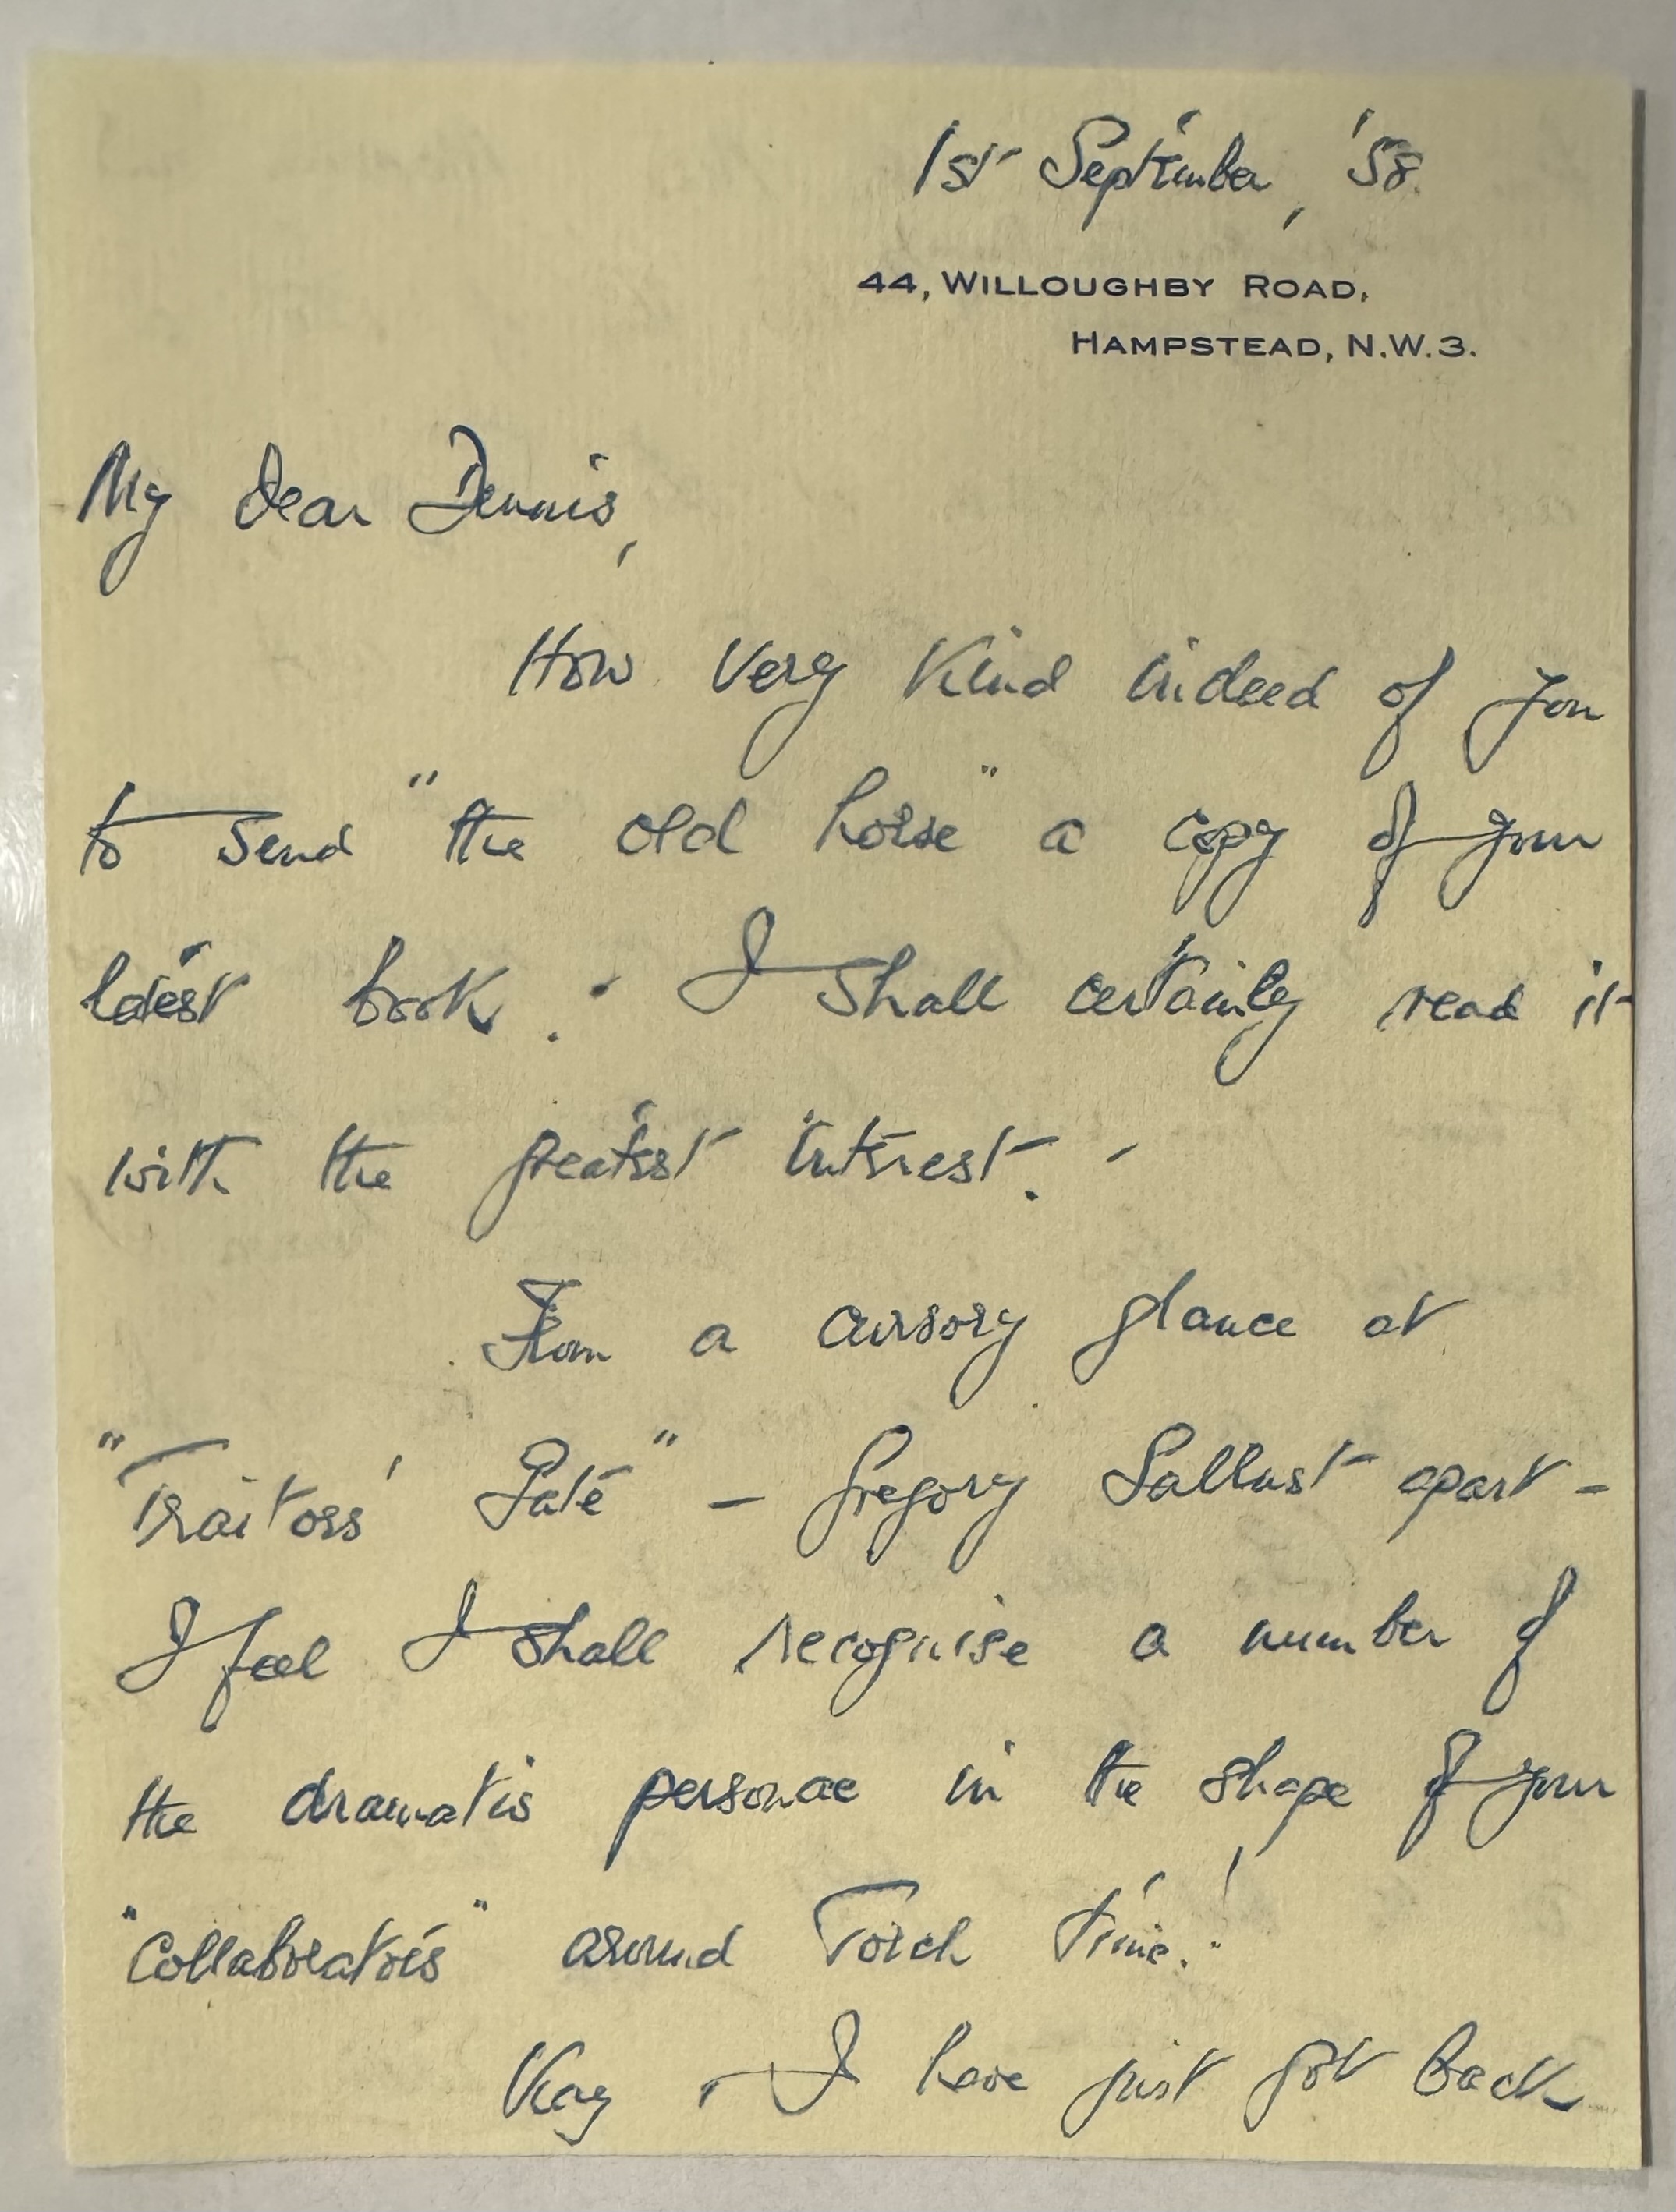 1st September, '58.
44, WILLOUGHBY ROAD,
HAMPSTEAD, N.W.3.
My dear Dennis,
How very kind indeed of you
to send "the old horse" a copy of your
latest book. I shall certainly read it
with the greatest interest. -
From a cursory glance at
"Traitors' Gate" - Gregory Sallust apart -
I feel I shall recognise a number of
the dramatis personae in the shape of your
"collaborators" around Torch time!
Kay & I have just got back